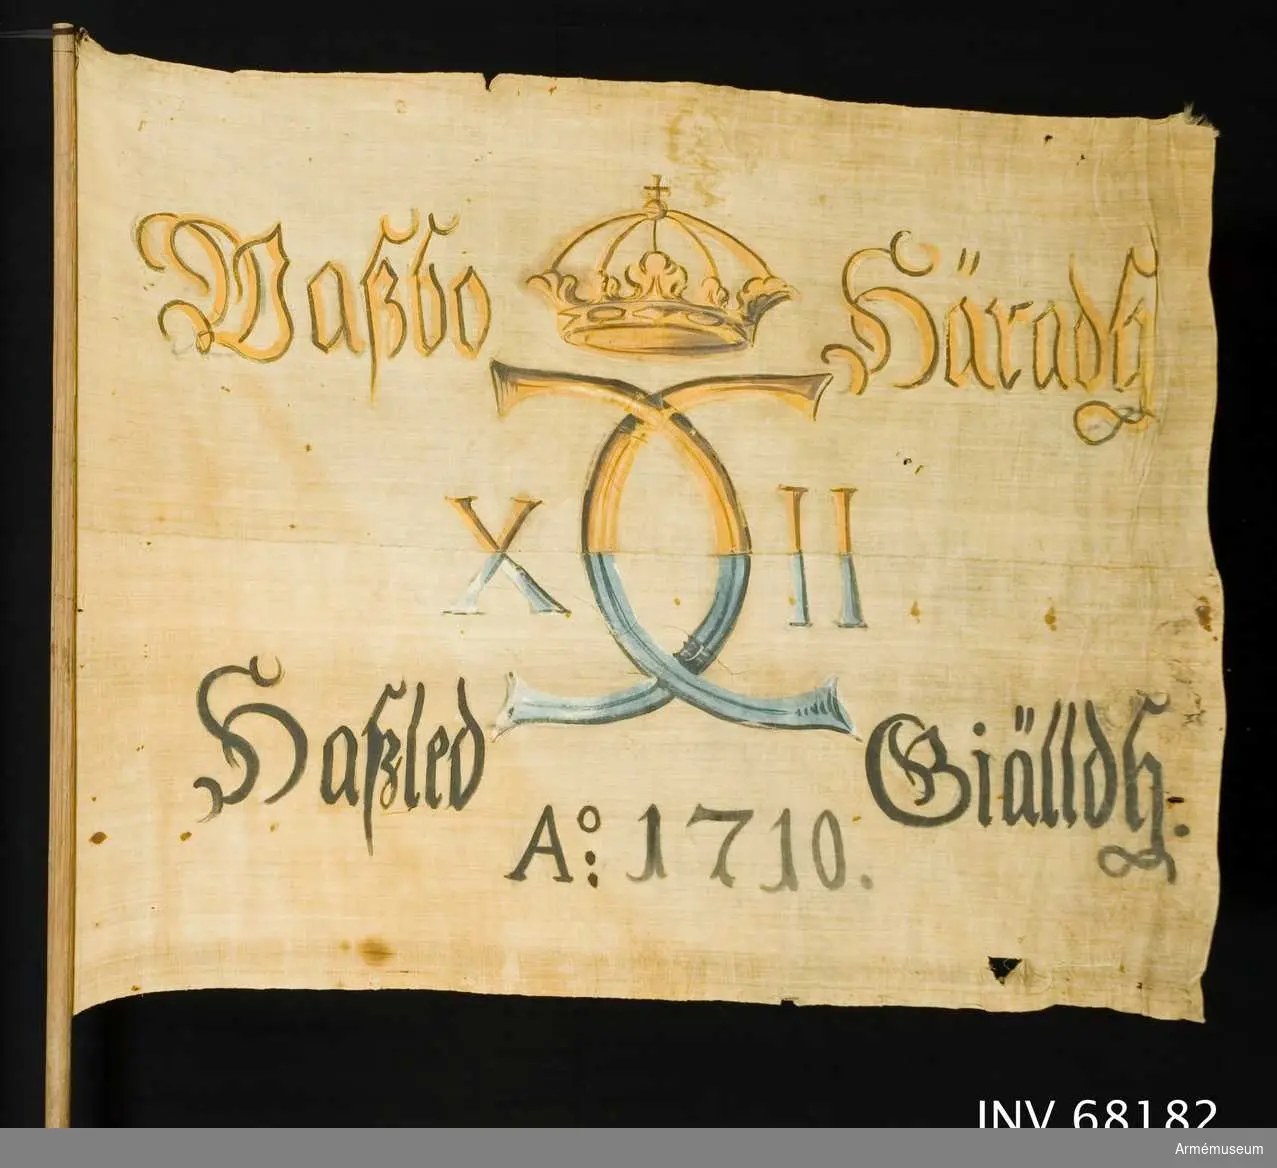 Waßbo Häradh
X II
Haßled Giälldh.
Ao: 1710.
INV 68182
Armémuseum